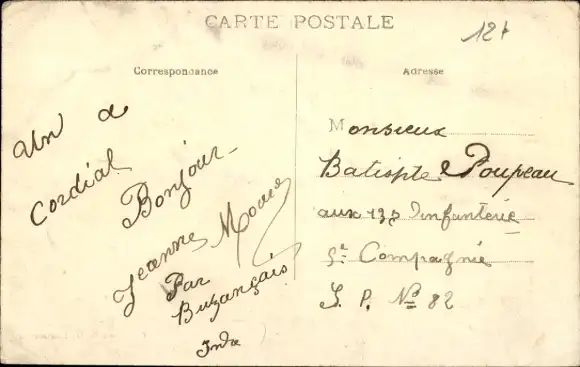 CARTE POSTALE
12f
Correspondance
Un
Cordial
Bonjour
Jeanne
Par
Buzançais
Indre
Adresse
Monsieur
Batispte Poupeau
aux 135 Dinfanterie
5e Compagnie
S. P. No 82